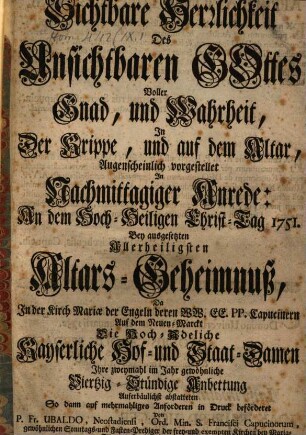 Sichtbare Herzlichkeit
Des
Unsichtbaren GOttes
Voller
Gnad, und Wahrheit,
In
Der Krippe, und auf dem Altar,
Augenscheinlich vorgestellet
In
Nachmittagiger Anrede:
An dem Hoch-Heiligen Christ-Tag 1751.
Bey ausgesetzten
Allerheiligsten
Altars-Geheimnuß,
Da
In der Kirch Mariæ der Engeln deren WW. EE. PP. Capucinern
Auf dem Neuen-Marckt
Die Hoch-Adeliche
Kayserliche Hof- und Staat-Damen
Ihre zweymahl im Jahr gewöhnliche
Viertzig-Stündige Anbettung
Auferbäulichst abstatteten
So dann auf mehrmahliges Anforderen in Druck beförderet
P. Fr. UBALDO, Neostadiensi, Ord. Min. S. Francisci Capucinorum,
gewöhnlichen Sonntags- und Fasten-Prediger der frey- und exempten Kirchen bey Maria-